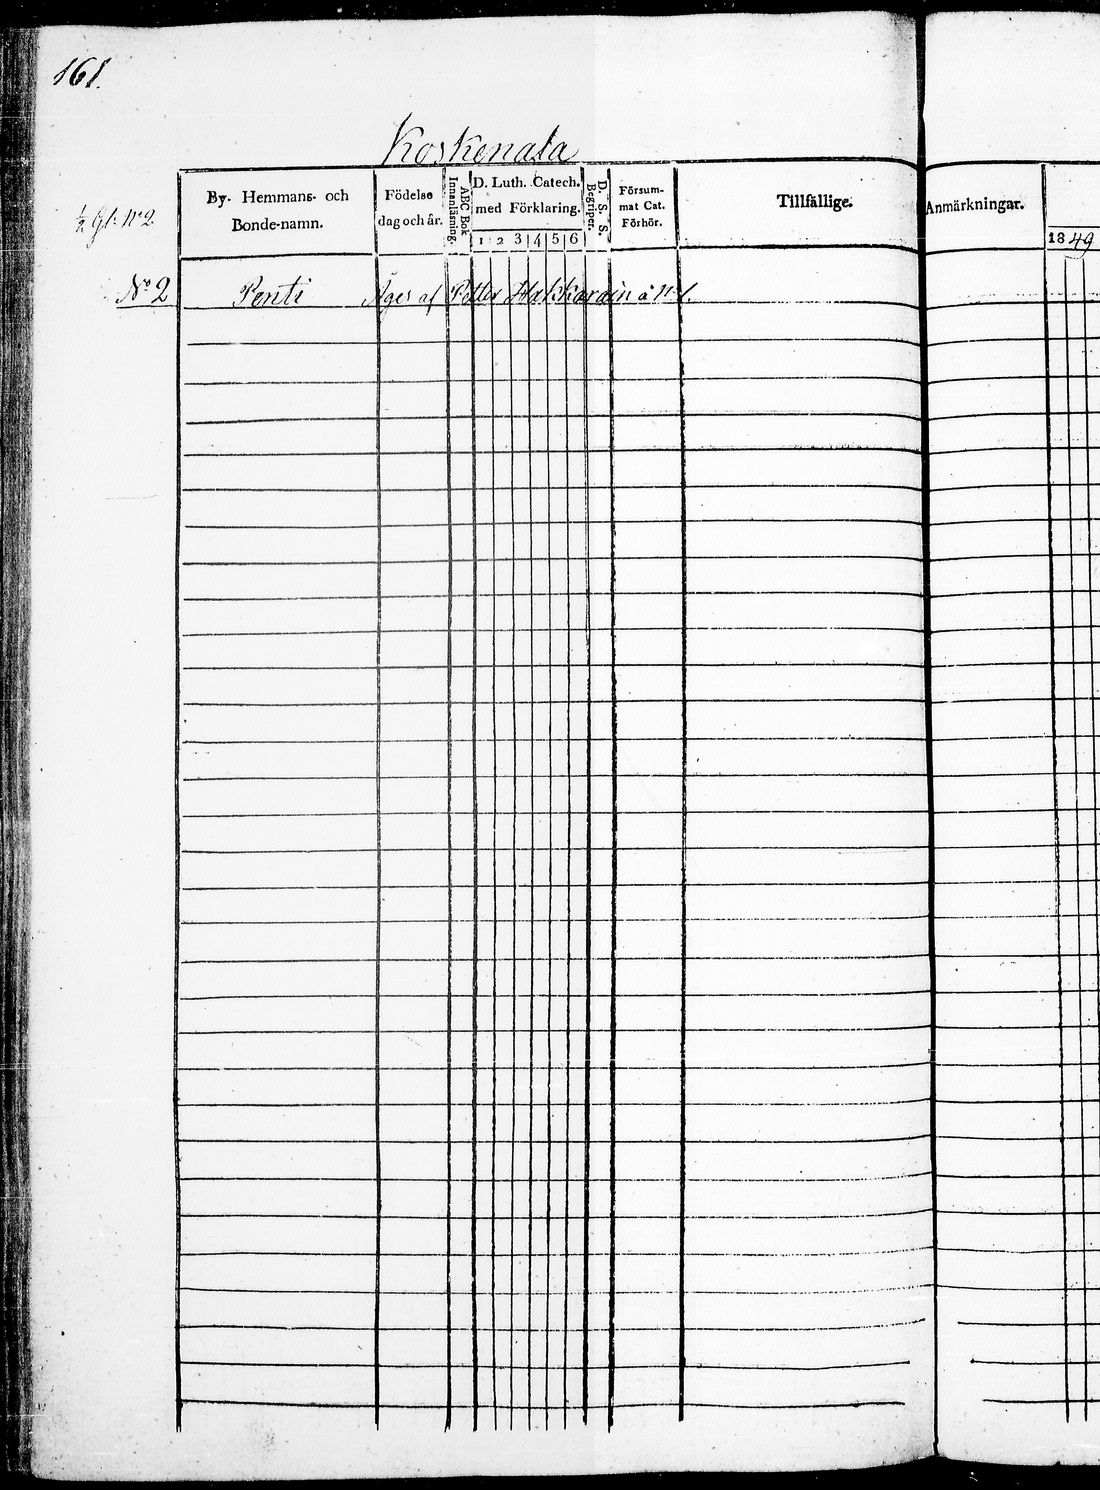 161.
Koskenala
By- Hemmans- och Bonde-namn.
Födelse dag och år.
ABC Bok Innanläsning.
D. Luth. Catech. med Förklaring.
1 2 3 4 5 6
D. S. S. Begriper.
Försummat Cat. Förhör.
Tillfällige.
Anmärkningar.
1849
½ Gl: N:o 2
N:o 2 Penti Äges af Petter Hakkarain å N:o 1.